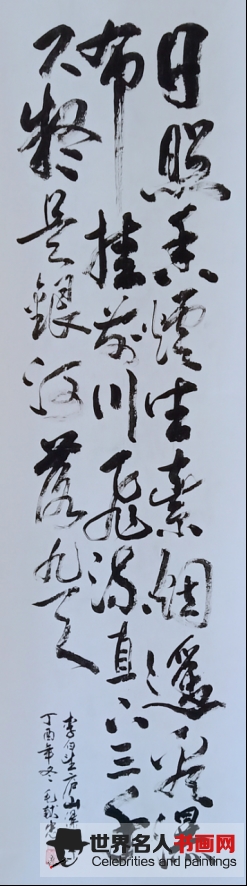 日照香爐生紫烟遙看瀑
布挂前川飛流直下三千
尺疑是銀河落九天
李白望庐山瀑
丁酉年冬毛
世界名人书画网
Celebrities and paintings